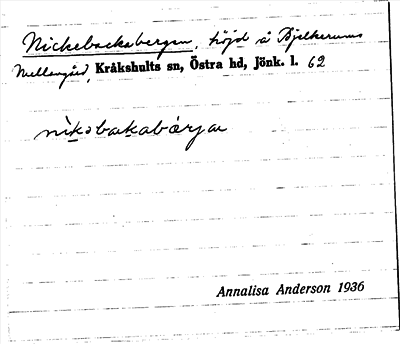 Nickebackabergen, höjd å Bjelkerums
Mellangård, Kråkshults sn, Östra hd, Jönk. l. 62
nìkəbakabárjan
Annalisa Anderson 1936